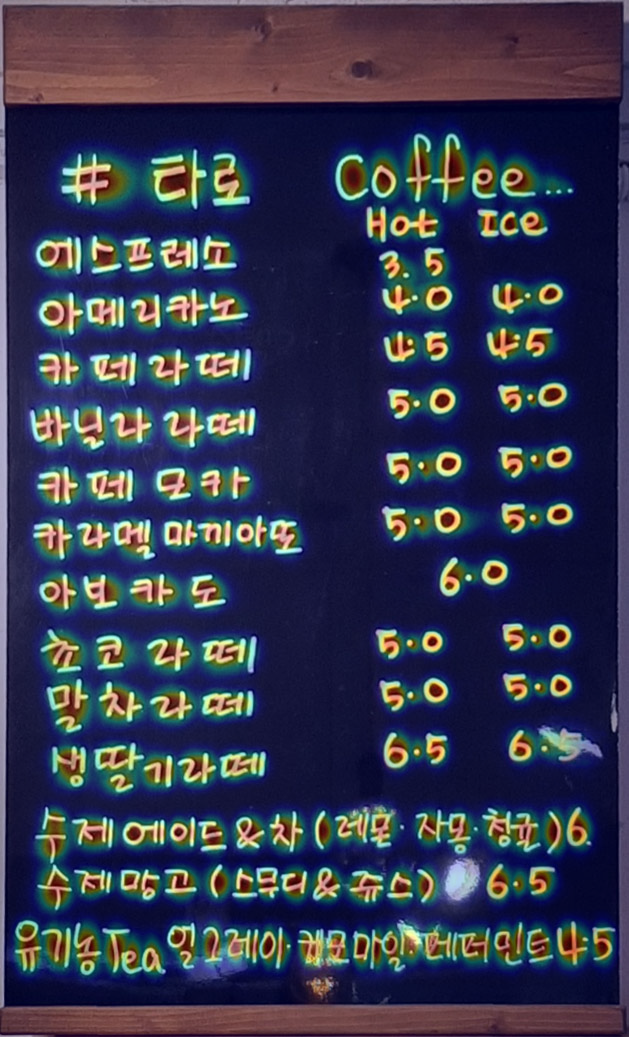 # 타로 Coffee...
Hot Ice
에스프레소 3.5
아메리카노 4.0 4.0
카페라떼 4.5 4.5
바닐라 라떼 5.0 5.0
카페 모카 5.0 5.0
카라멜 마끼아또 5.0 5.0
아보카도 6.0
쵸코 라떼 5.0 5.0
말차라떼 5.0 5.0
생딸기라떼 6.5 6.5
수제에이드&차 (레몬·자몽·청귤) 6.
수제망고 (스무디&쥬스) 6.5
유기농Tea 얼그레이·캐모마일·페퍼민트 4.5